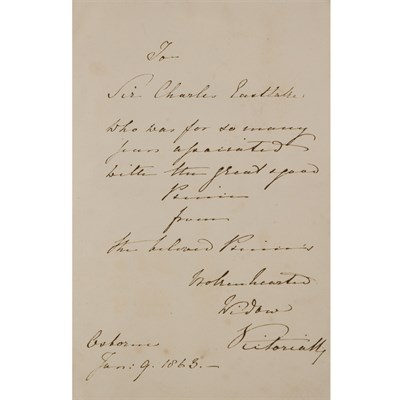 To
Sir Charles Eastlake.
who was for so many
years associated
with the great & good
Prince
from
the beloved Prince's
brokenhearted
Widow
Victoria R
Osborne
Jan: 9. 1863.—